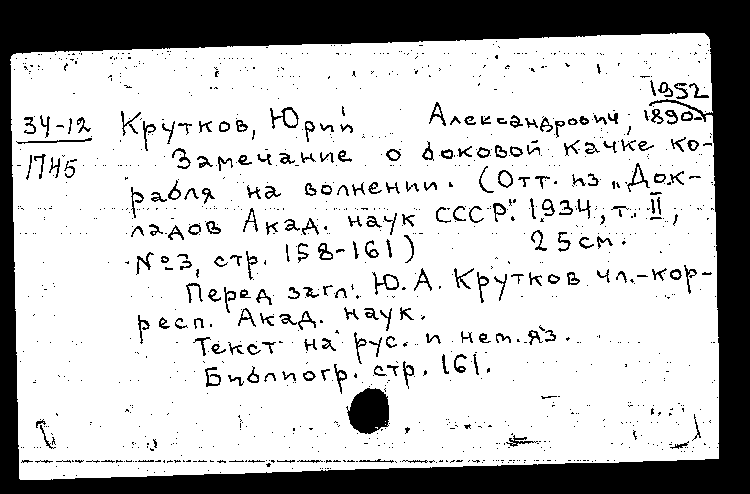 1952
34-12 Крутков, Юрий Александрович, 1890-
1745 Замечание о боковой качке ко-
рабля на волнении. (Отт. из „Док-
ладов Акад. наук СССР". 1934, т. II,
№3, стр. 158-161) 25 см.
Перед загл.: Ю. А. Крутков чл.-кор-
респ. Акад. наук.
Текст на рус. и нем. яз.
Библиогр. стр. 161.